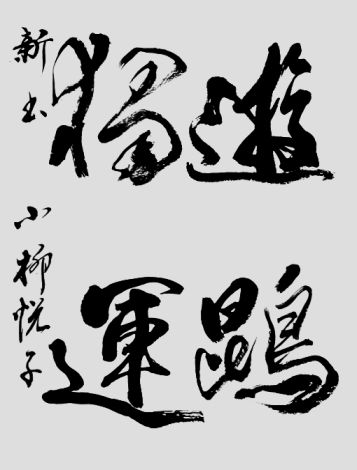 遊鵾
獨運
新
小柳悦子